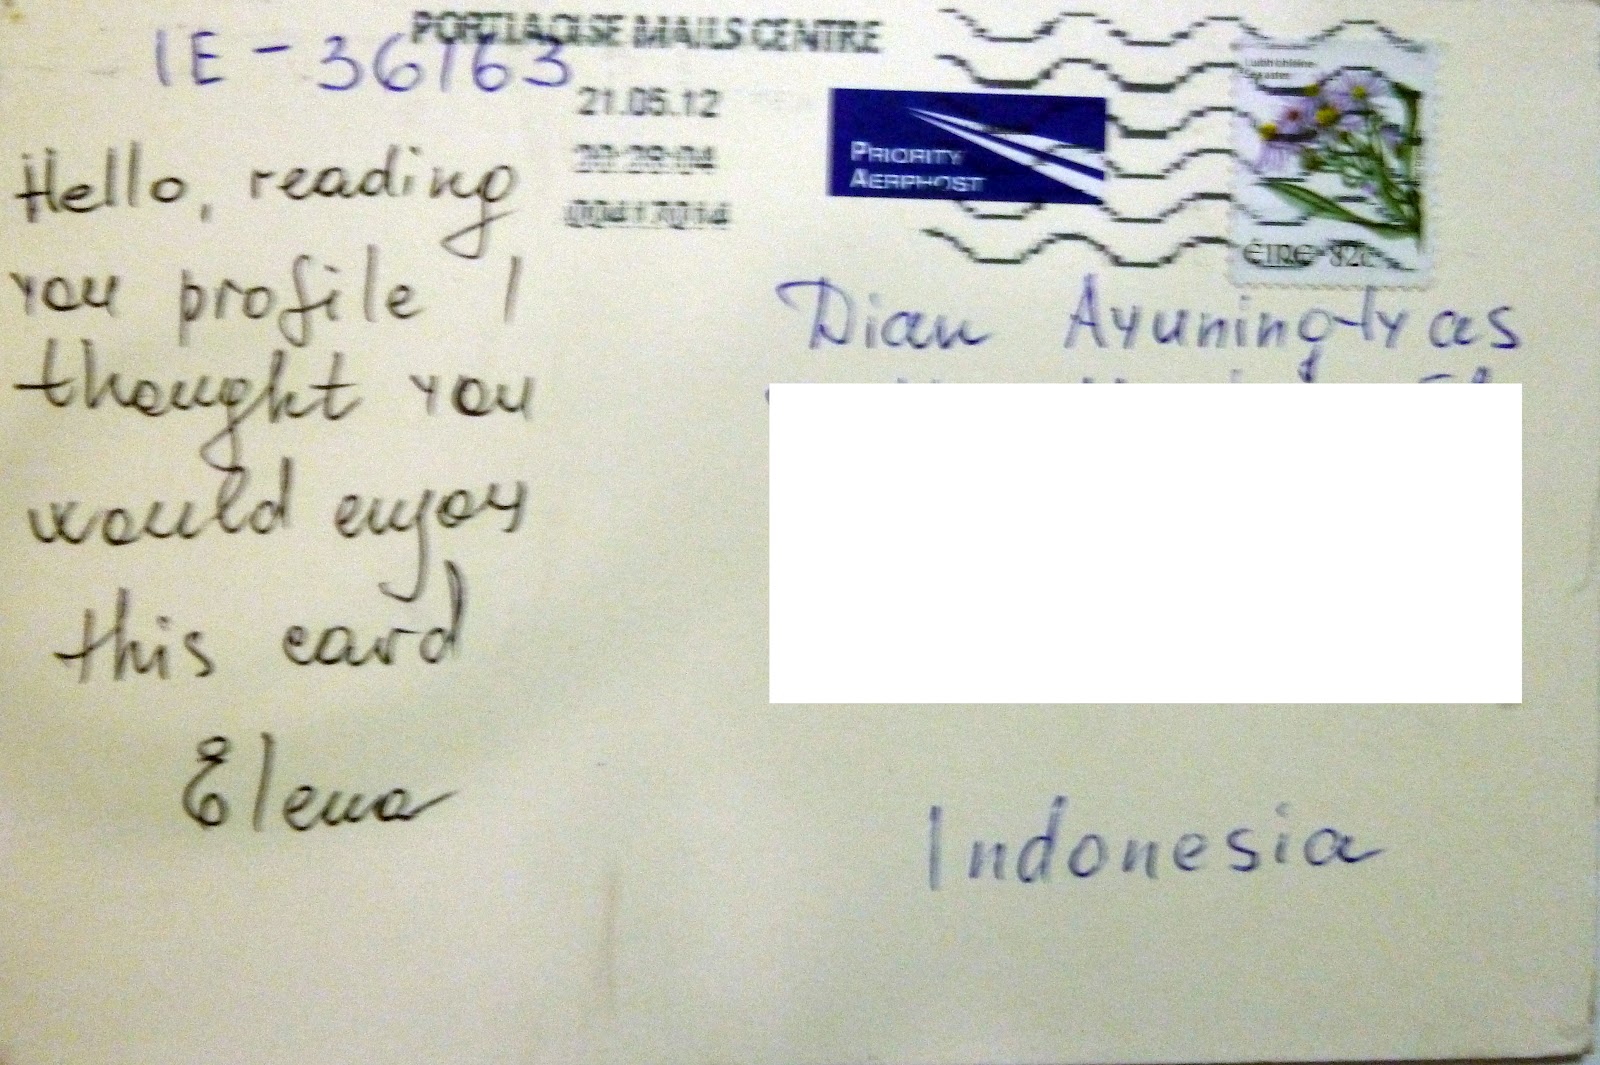 PORTLAOISE MAILS CENTRE
IE - 36163
21.05.12
20:28:04
00417014
PRIORITY
AERPHOST
ÉIRE 82c
Hello, reading
you profile I
thought you
would enjoy
this card
Elena
Dian Ayuningtyas
Indonesia